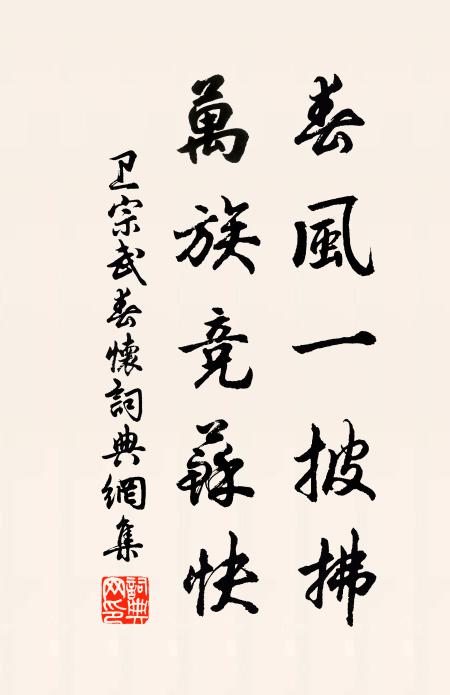 春風一披拂
萬族竞蘇快
卫宗武春懷詞典網集
詞典網印